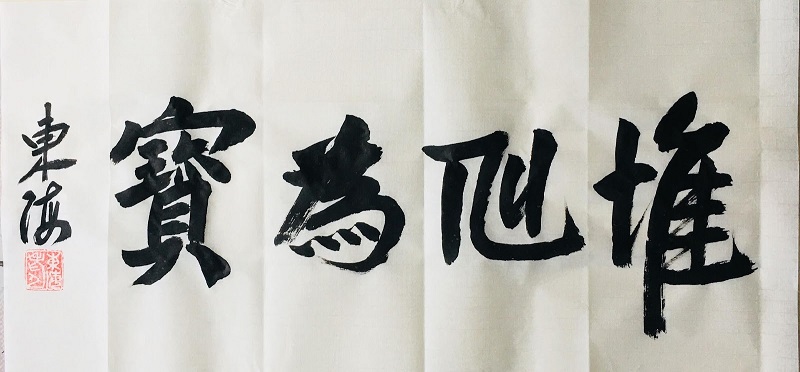 惟為寶
東海